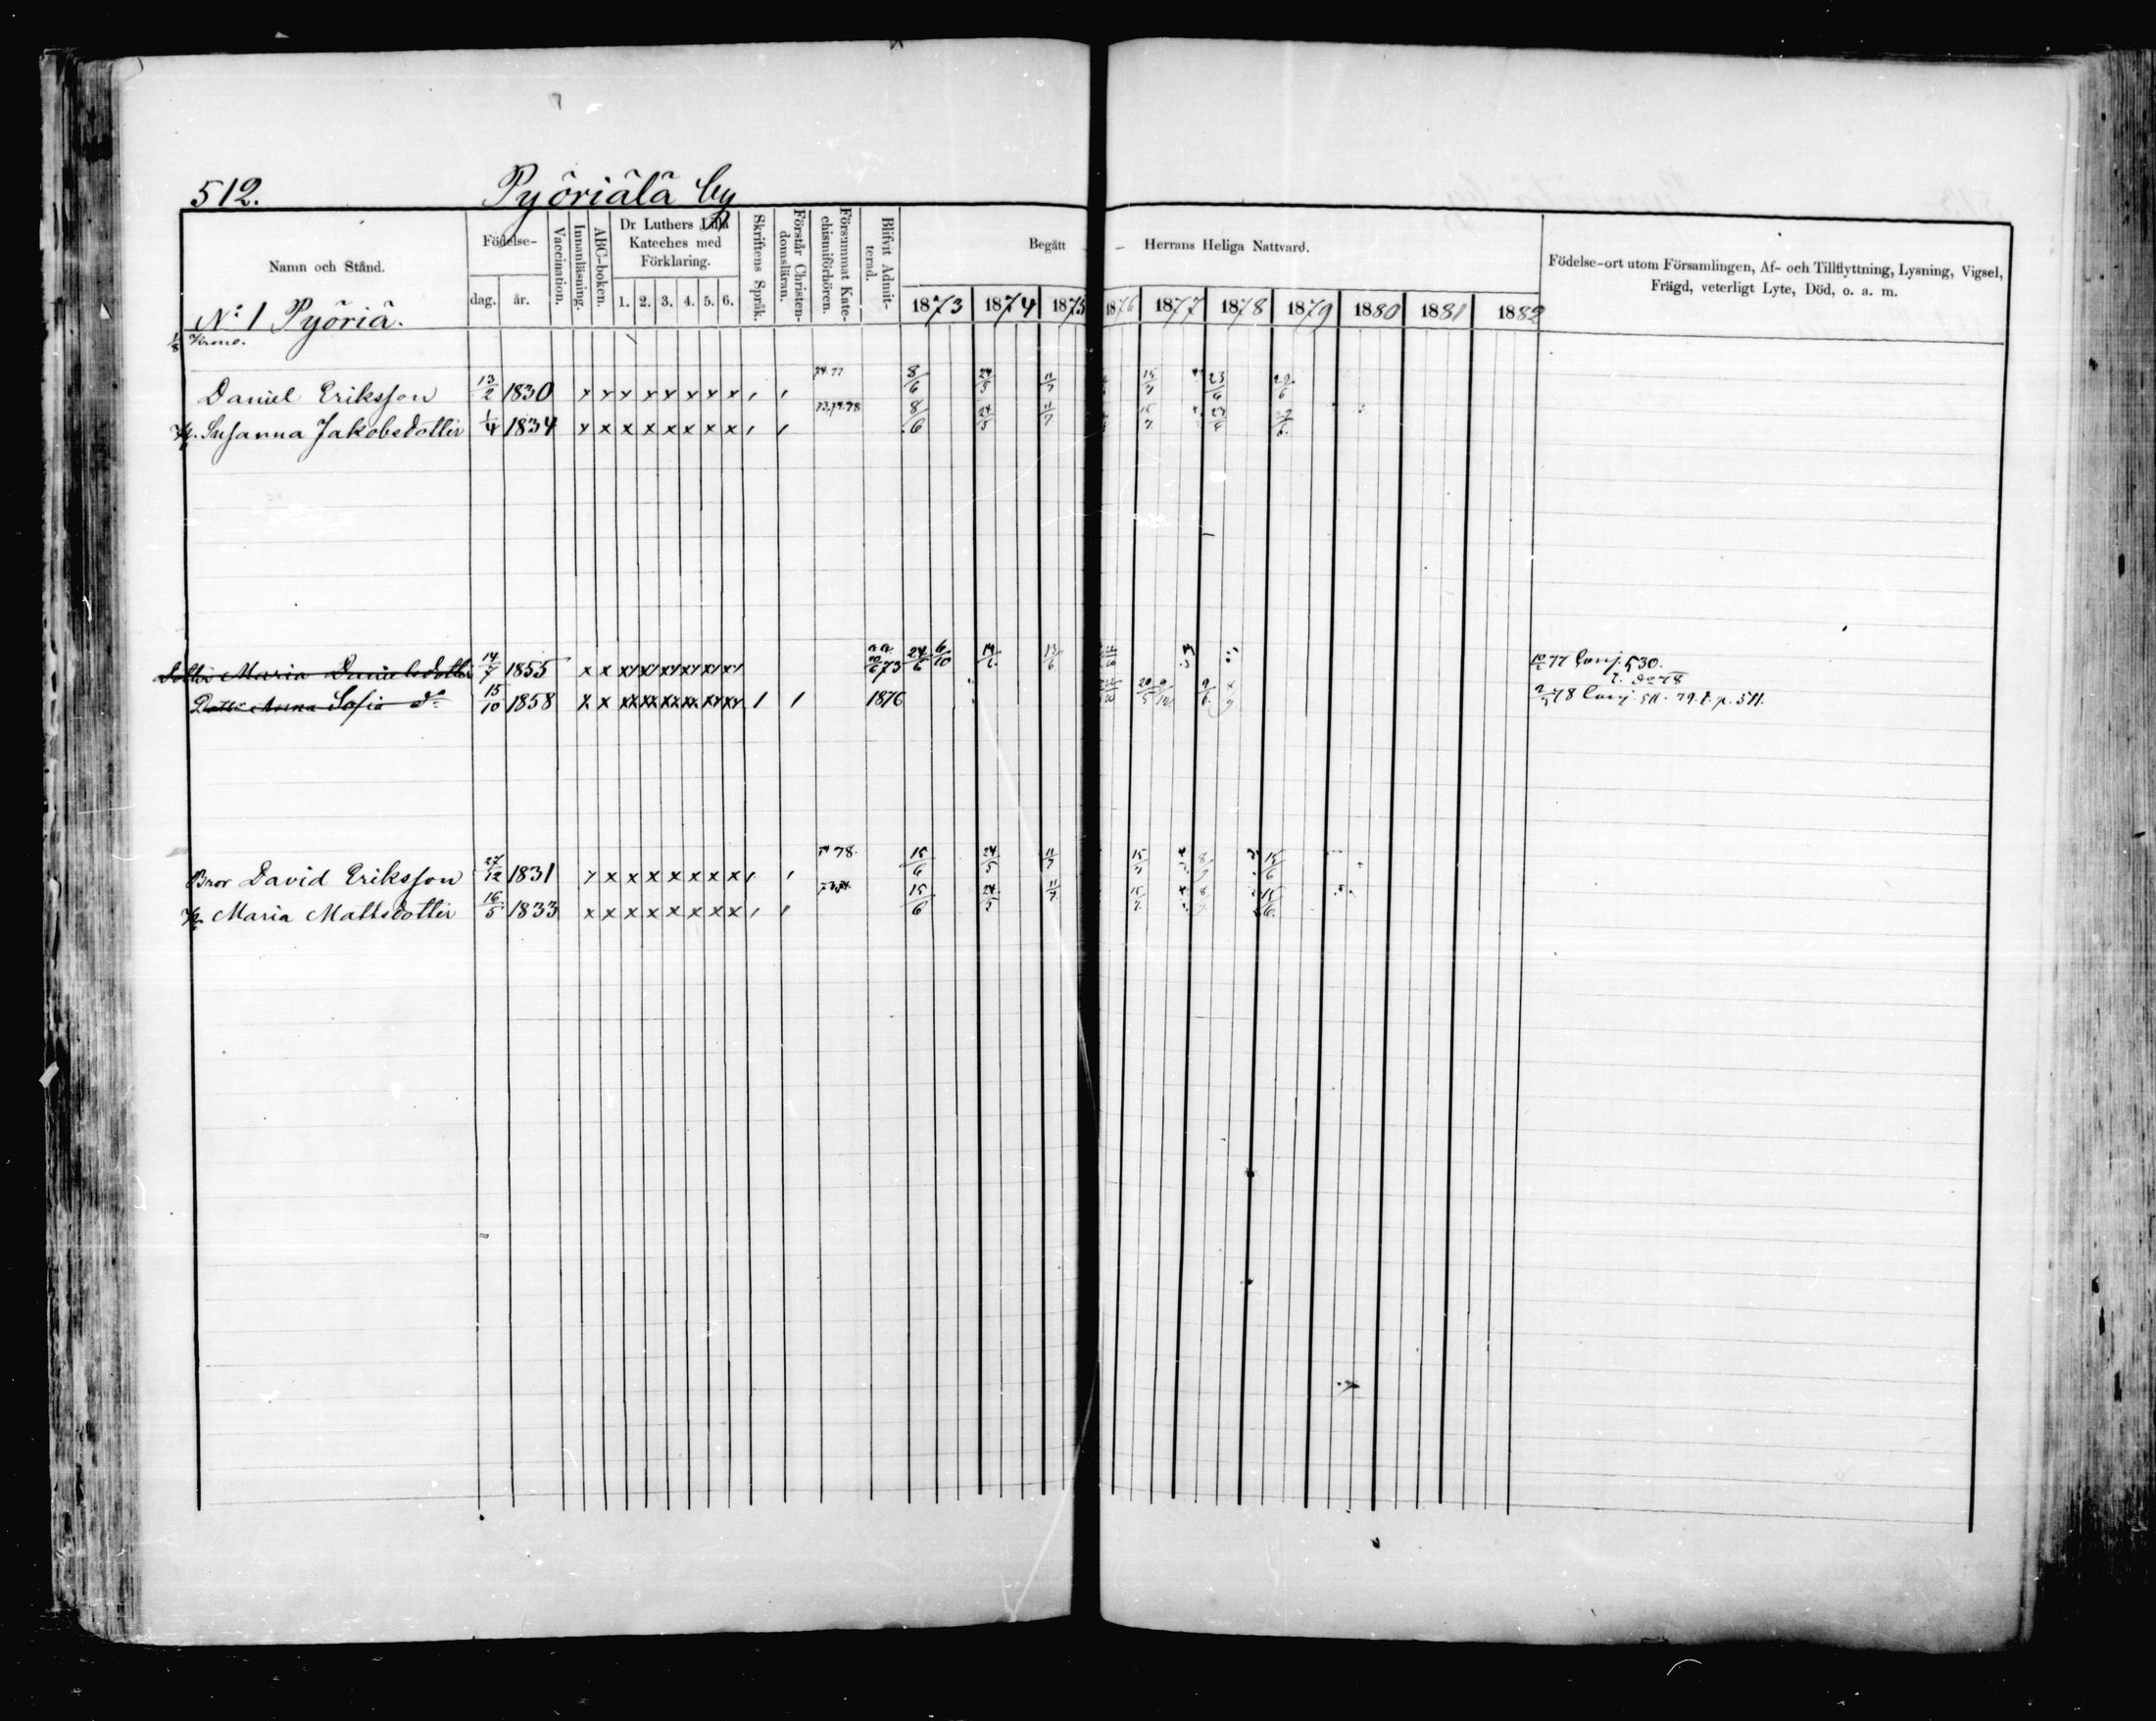 512. Pyöriälä by
Namn och Stånd. Födelse- dag. år. Vaccination. Innanläsning. ABC-boken. Dr Luthers Lilla Kateches med Förklaring. 1. 2. 3. 4. 5. 6. Skriftens Språk. Förstår Christendomsläran. Försummat Katechismiförhören. Blifvit Admitterad. Begått Herrans Heliga Nattvard. 1873 1874 1875 1876 1877 1878 1879 1880 1881 1882 Födelse-ort utom Församlingen, Af- och Tillflyttning, Lysning, Vigsel, Frägd, veterligt Lyte, Död, o. a. m.
No 1 Pyöriä.
Krono.
Daniel Eriksson 13/2 1830 x x x x x x x x 8/6 24/5 11/7 15/7 23/6 29/6
Susanna Jakobsdotter 1/4 1834 x x x x x x x x 73.74.78 8/6 24/5 11/7 15/7 23/6
Dotter Maria Danielsdotter 14/7 1855 x x 73 24/6 6/10 14/6 13/6 10/2 77 Conj. 530.
do 78
Dottr Anna Sofia do 15/10 1858 x x 1876 20/5 9/6 78 Conj. 511. 79. t. p. 511.
Bror David Eriksson 27/12 1831 x x x x x x x x 78. 15/6 24/5 11/7 15/7 15/6
Maria Mattsdotter 16/5 1833 x x x x x x x x 15/6 24/5 11/7 15/7 15/6